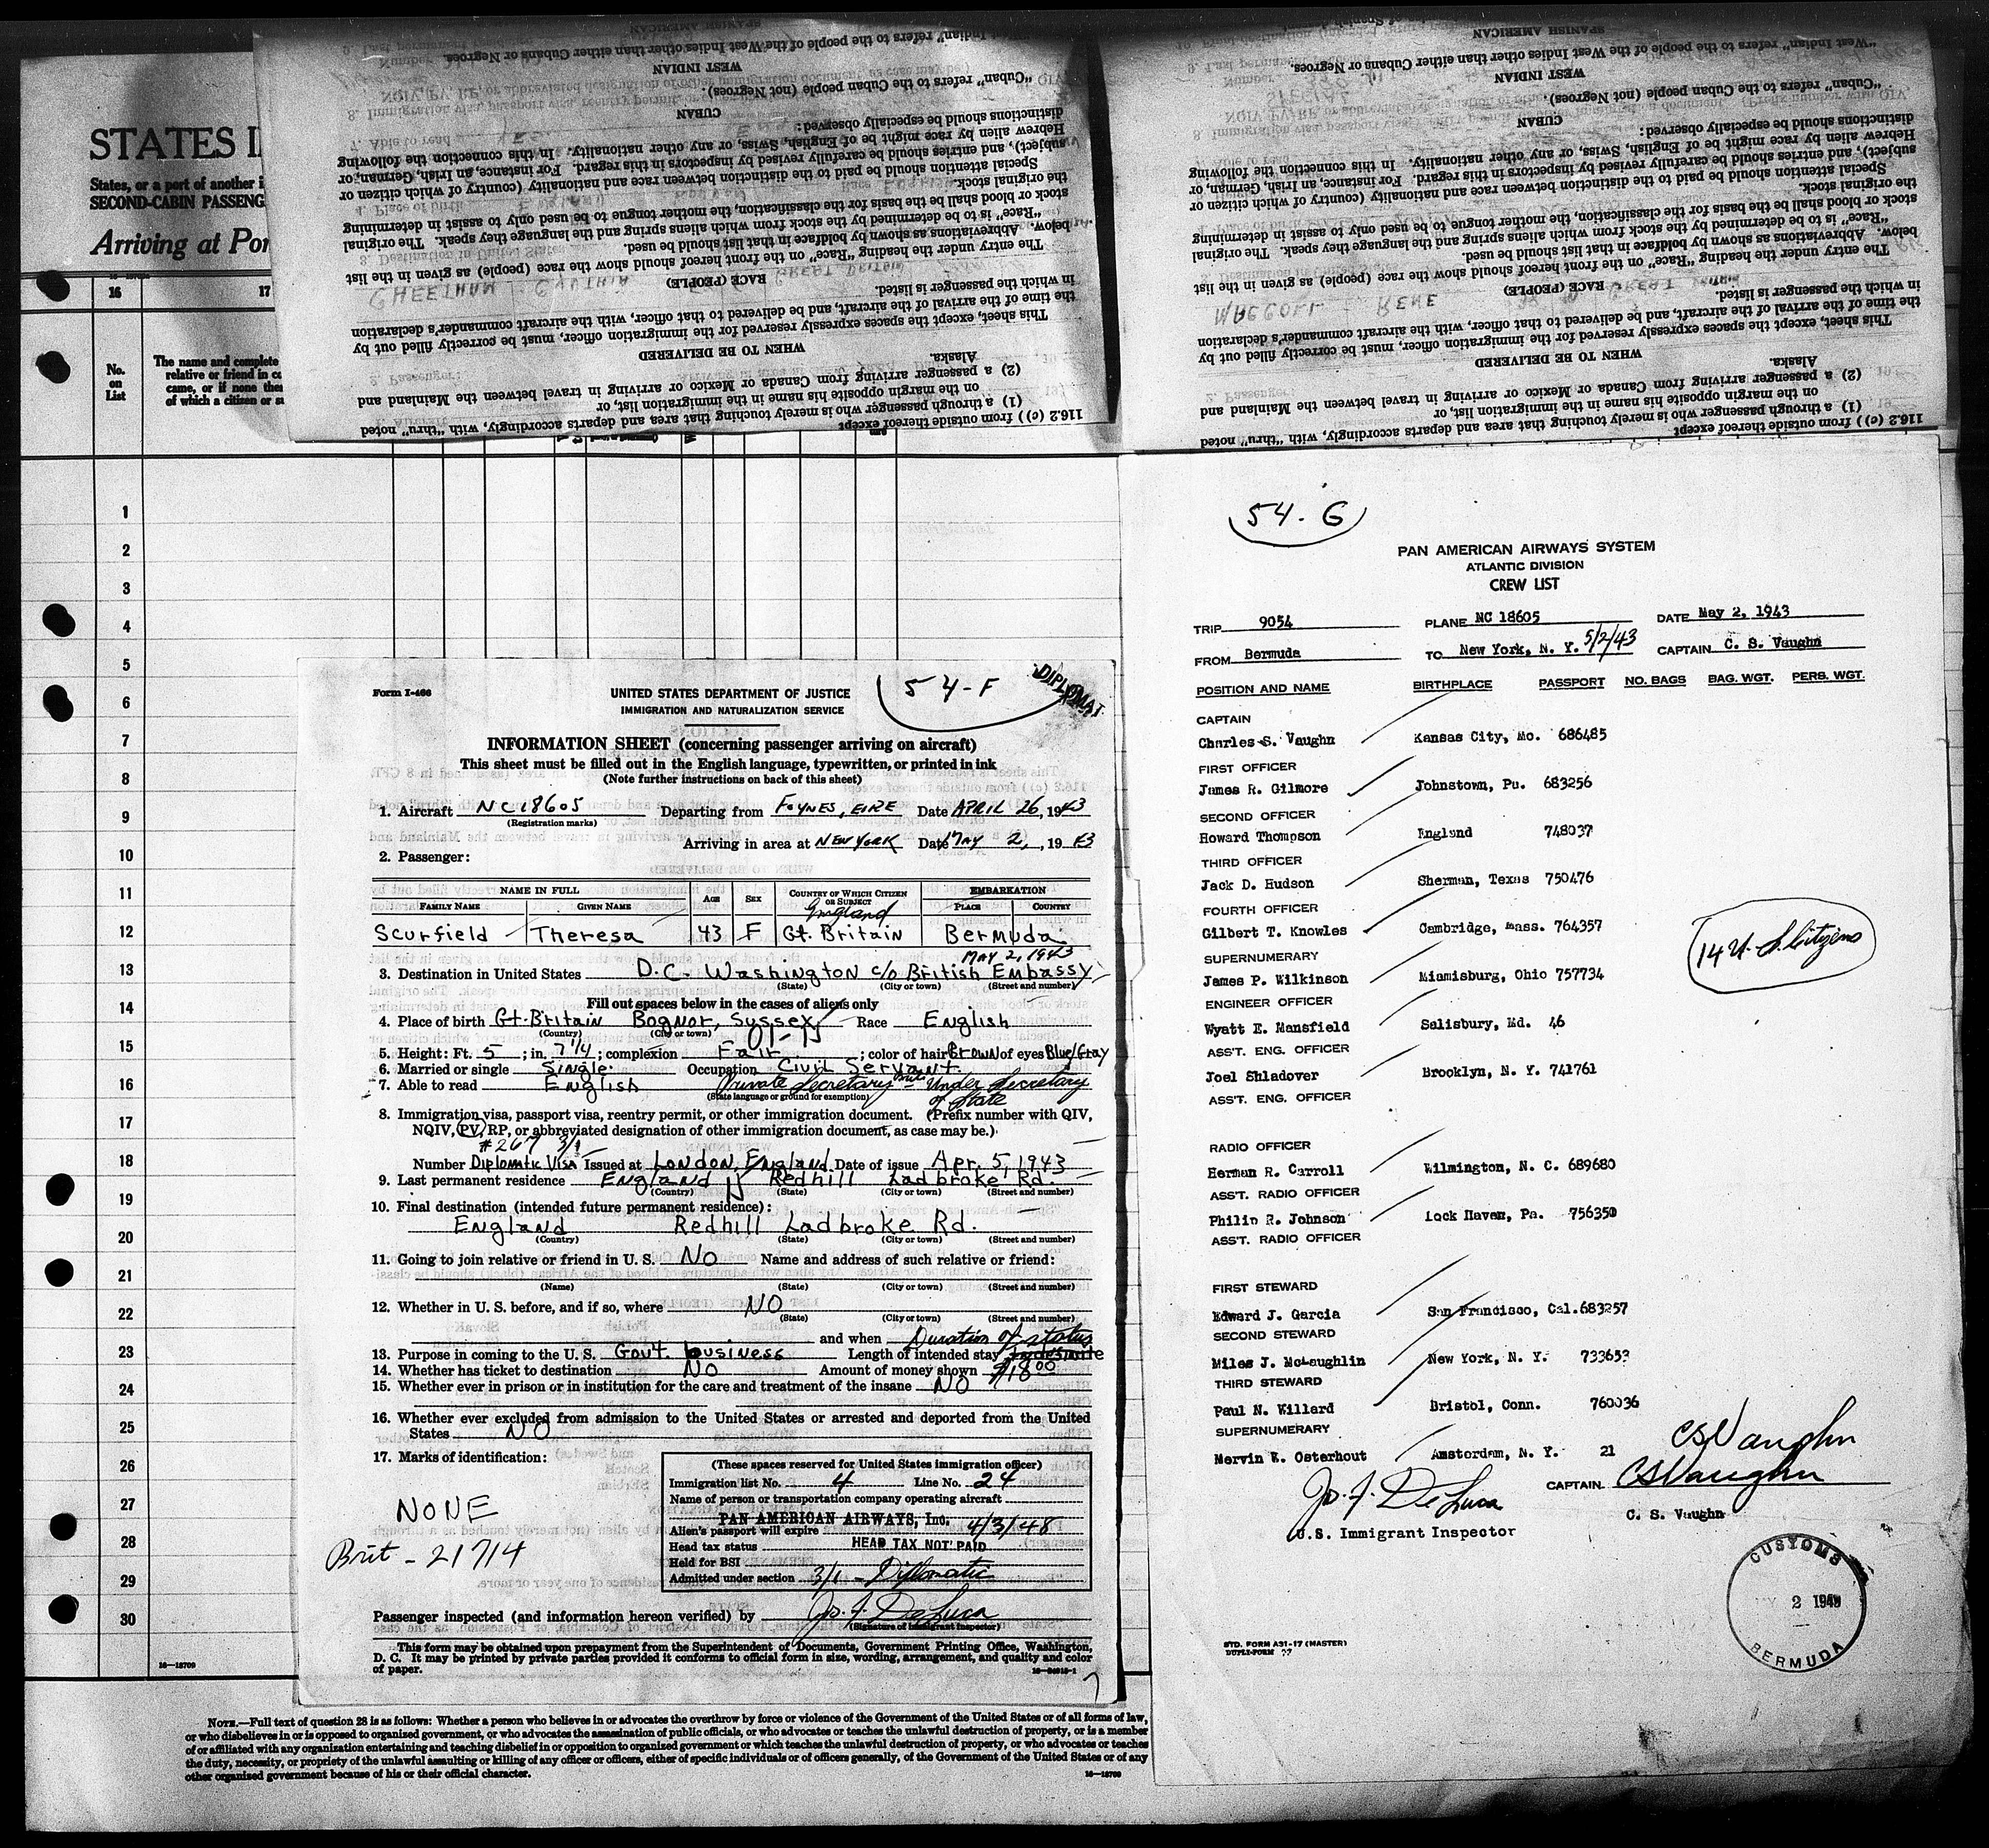 STATES I
States, or a port of another i
SECOND-CABIN PASSENG
Arriving at Por
16 17
No.
on
List
The name and complete
relative or friend in c
came, or if none the
of which a citizen or su
1
2
3
4
5
6
7
8
9
10
11
12
13
14
15
16
17
18
19
20
21
22
23
24
25
26
27
28
29
30
16—18709
116.2 (c)) from outside thereof except
(1) a through passenger who is merely touching that area and departs accordingly, with "thru" noted
on the margin opposite his name in the immigration list, or
(2) a passenger arriving from Canada or Mexico or arriving in travel between the Mainland and
Alaska.
WHEN TO BE DELIVERED
This sheet, except the spaces expressly reserved for the immigration officer, must be correctly filled out by
the time of the arrival of the aircraft, and be delivered to that officer, with the aircraft commander's declaration
in which the passenger is listed.
RACE (PEOPLE)
The entry under the heading "Race" on the front hereof should show the race (people) as given in the list
below. Abbreviations as shown by boldface in that list should be used.
"Race" is to be determined by the stock from which aliens spring and the language they speak. The original
stock or blood shall be the basis for the classification, the mother tongue to be used only to assist in determining
the original stock.
Special attention should be paid to the distinction between race and nationality (country of which citizen or
subject), and entries should be carefully revised by inspectors in this regard. For instance, an Irish, German, or
Hebrew alien by race might be of English, Swiss, or any other nationality. In this connection the following
distinctions should be especially observed:
CUBAN
"Cuban" refers to the Cuban people (not Negroes).
WEST INDIAN
"West Indian" refers to the people of the West Indies other than either Cubans or Negroes.
SPANISH AMERICAN
116.2 (c)) from outside thereof except
(1) a through passenger who is merely touching that area and departs accordingly, with "thru" noted
on the margin opposite his name in the immigration list, or
(2) a passenger arriving from Canada or Mexico or arriving in travel between the Mainland and
Alaska.
WHEN TO BE DELIVERED
This sheet, except the spaces expressly reserved for the immigration officer, must be correctly filled out by
the time of the arrival of the aircraft, and be delivered to that officer, with the aircraft commander's declaration
in which the passenger is listed.
RACE (PEOPLE)
The entry under the heading "Race" on the front hereof should show the race (people) as given in the list
below. Abbreviations as shown by boldface in that list should be used.
"Race" is to be determined by the stock from which aliens spring and the language they speak. The original
stock or blood shall be the basis for the classification, the mother tongue to be used only to assist in determining
the original stock.
Special attention should be paid to the distinction between race and nationality (country of which citizen or
subject), and entries should be carefully revised by inspectors in this regard. For instance, an Irish, German, or
Hebrew alien by race might be of English, Swiss, or any other nationality. In this connection the following
distinctions should be especially observed:
CUBAN
"Cuban" refers to the Cuban people (not Negroes).
WEST INDIAN
"West Indian" refers to the people of the West Indies other than either Cubans or Negroes.
SPANISH AMERICAN
Form I-466
54-F
DIPLOMAT
UNITED STATES DEPARTMENT OF JUSTICE
IMMIGRATION AND NATURALIZATION SERVICE
INFORMATION SHEET (concerning passenger arriving on aircraft)
This sheet must be filled out in the English language, typewritten, or printed in ink
(Note further instructions on back of this sheet)
1. Aircraft NC18605 Departing from FOYNES, EIRE Date APRIL 26, 1943
(Registration marks)
Arriving in area at NEW YORK Date MAY 2, 1943
2. Passenger:
NAME IN FULL AGE SEX COUNTRY OF WHICH CITIZEN OR SUBJECT EMBARKATION
FAMILY NAME GIVEN NAME England PLACE COUNTRY
Scurfield Theresa 43 F Gt. Britain Bermuda
MAY 2, 1943
3. Destination in United States D.C. Washington c/o British Embassy
(State) (City or town) (Street and number)
Fill out spaces below in the cases of aliens only
4. Place of birth Gt. Britain Bognor, Sussex Race English
(Country) (City or town)
5. Height: Ft. 5; in. 7 1/4; complexion Fair; color of hair Brown of eyes Blue/Gray
6. Married or single Single. Occupation Civil Servant
7. Able to read English Private Secretary Under Secretary
(State language or ground for exemption) of State
8. Immigration visa, passport visa, reentry permit, or other immigration document. (Prefix number with QIV,
NQIV, PV, RP, or abbreviated designation of other immigration document, as case may be.)
#267 3/1
Number Diplomatic Visa Issued at London, England Date of issue Apr. 5, 1943
9. Last permanent residence England Redhill Ladbroke Rd.
(Country) (State) (City or town) (Street and number)
10. Final destination (intended future permanent residence):
England Redhill Ladbroke Rd.
(Country) (State) (City or town) (Street and number)
11. Going to join relative or friend in U. S. No Name and address of such relative or friend:
(Name) (State) (City or town) (Street and number)
12. Whether in U. S. before, and if so, where NO
(State) (City or town) (Street and number)
and when Duration of status
13. Purpose in coming to the U. S. Govt. business Length of intended stay Indefinite
14. Whether has ticket to destination NO Amount of money shown $18.00
15. Whether ever in prison or in institution for the care and treatment of the insane NO
16. Whether ever excluded from admission to the United States or arrested and deported from the United
States NO
17. Marks of identification:
NONE
Brit - 21714
(These spaces reserved for United States immigration officer)
Immigration list No. 4 Line No. 24
Name of person or transportation company operating aircraft
PAN AMERICAN AIRWAYS, INC.
Alien's passport will expire 4/3/48
Head tax status HEAD TAX NOT PAID
Held for BSI
Admitted under section 3/1 - Diplomatic
Passenger inspected (and information hereon verified) by Jo. F. DeLuca
(Signature of Immigrant Inspector)
This form may be obtained upon prepayment from the Superintendent of Documents, Government Printing Office, Washington,
D. C. It may be printed by private parties provided it conforms to official form in size, wording, arrangement, and quality and color
of paper.
NOTE.—Full text of question 28 is as follows: Whether a person who believes in or advocates the overthrow by force or violence of the Government of the United States or of all forms of law,
or who disbelieves in or is opposed to organized government, or who advocates the assassination of public officials, or who advocates or teaches the unlawful destruction of property, or is a member
of or affiliated with any organization entertaining and teaching disbelief in or opposition to organized government or which teaches the unlawful destruction of property, or who advocates or teaches
the duty, necessity, or propriety of the unlawful assaulting or killing of any officer or officers, either of specific individuals or of officers generally, of the Government of the United States or of any
other organized government because of his or their official character.
16—18709
54-G
PAN AMERICAN AIRWAYS SYSTEM
ATLANTIC DIVISION
CREW LIST
TRIP 9054 PLANE NC 18605 DATE May 2, 1943
FROM Bermuda TO New York, N. Y. 5/2/43 CAPTAIN C. S. Vaughn
POSITION AND NAME BIRTHPLACE PASSPORT NO. BAGS BAG. WGT. PERS. WGT.
CAPTAIN
Charles S. Vaughn Kansas City, Mo. 686485
FIRST OFFICER
James R. Gilmore Johnstown, Pa. 683256
SECOND OFFICER
Howard Thompson England 748037
THIRD OFFICER
Jack D. Hudson Sherman, Texas 750476
FOURTH OFFICER
Gilbert T. Knowles Cambridge, Mass. 764357
14 U. S. Citizens
SUPERNUMERARY
James P. Wilkinson Miamisburg, Ohio 757734
ENGINEER OFFICER
Wyatt E. Mansfield Salisbury, Md. 46
ASS'T. ENG. OFFICER
Joel Shladover Brooklyn, N. Y. 741761
ASS'T. ENG. OFFICER
RADIO OFFICER
Herman R. Carroll Wilmington, N. C. 689680
ASS'T. RADIO OFFICER
Philip R. Johnson Lock Haven, Pa. 756350
ASS'T. RADIO OFFICER
FIRST STEWARD
Edward J. Garcia San Francisco, Cal. 683257
SECOND STEWARD
Miles J. McLaughlin New York, N. Y. 733653
THIRD STEWARD
Paul N. Willard Bristol, Conn. 760036
SUPERNUMERARY
Mervin W. Osterhout Amsterdam, N. Y. 21
CS Vaughn
Jo. F. DeLuca CAPTAIN CS Vaughn
U.S. Immigrant Inspector C. S. Vaughn
CUSTOMS
2 1943
BERMUDA
STD. FORM A31-17 (MASTER)
DUPLI-FORM